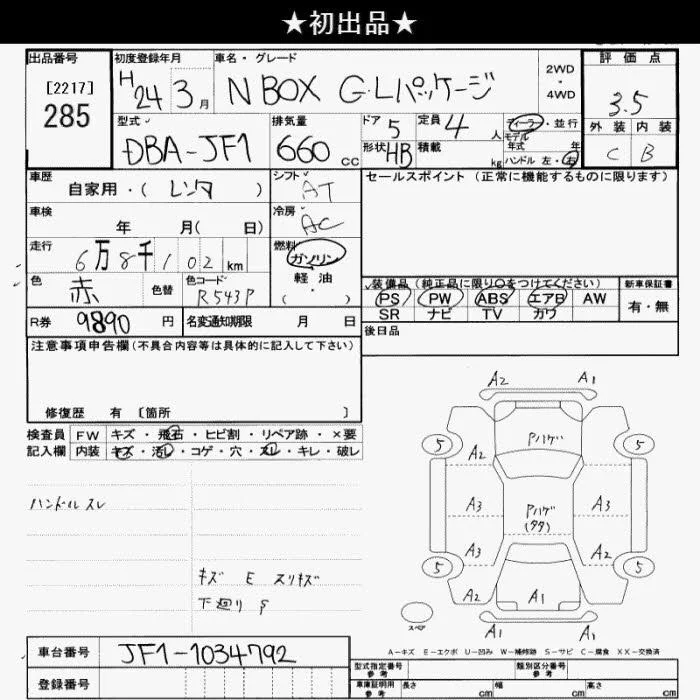 ★初出品★
出品番号 初度登録年月 車名・グレード 評価点
[2217]
285
H24 3月 N BOX G・Lパッケージ 2WD・4WD 3.5
型式 排気量 ドア 5 定員 4人 ディーラー・並行 外装 内装
DBA-JF1 660cc 形状 HB 積載 kg モデル年式 年 ハンドル 左・右 C B
車歴 シフト セールスポイント(正常に機能するものに限ります)
自家用・(レンタ) AT
車検 冷房
年 月( 日) AC
走行 燃料
6万8千102km ガソリン
色 色替 色コード 軽油
赤 R543P ・( )
装備品(純正品に限り○をつけてください) 新車保証書
PS PW ABS エアB AW 有・無
SR ナビ TV カワ
R券 9890円 名変通知期限 月 日
後日品
注意事項申告欄(不具合内容等は具体的に記入して下さい)
修復歴 有 〔箇所 〕
検査員 FW キズ・飛石・ヒビ割・リペア跡・×要
記入欄 内装 キズ・汚レ・コゲ・穴・スレ・キレ・破レ
ハンドル スレ
キズ E スリキズ
下廻り S
A2 A1
5 Pハゲ 5
A2
A3 Pハゲ A3
(タタ)
A3 A2
5 5
A2 A1 A2
スペア A1 A1
A-キズ E-エクボ U-凹み W-補修跡 S-サビ C-腐食 XX-交換済
車台番号 JF1-1034792
登録番号
型式指定番号 参考 類別区分番号 参考
車庫証明用 参考 長さ cm 幅 cm 高さ cm